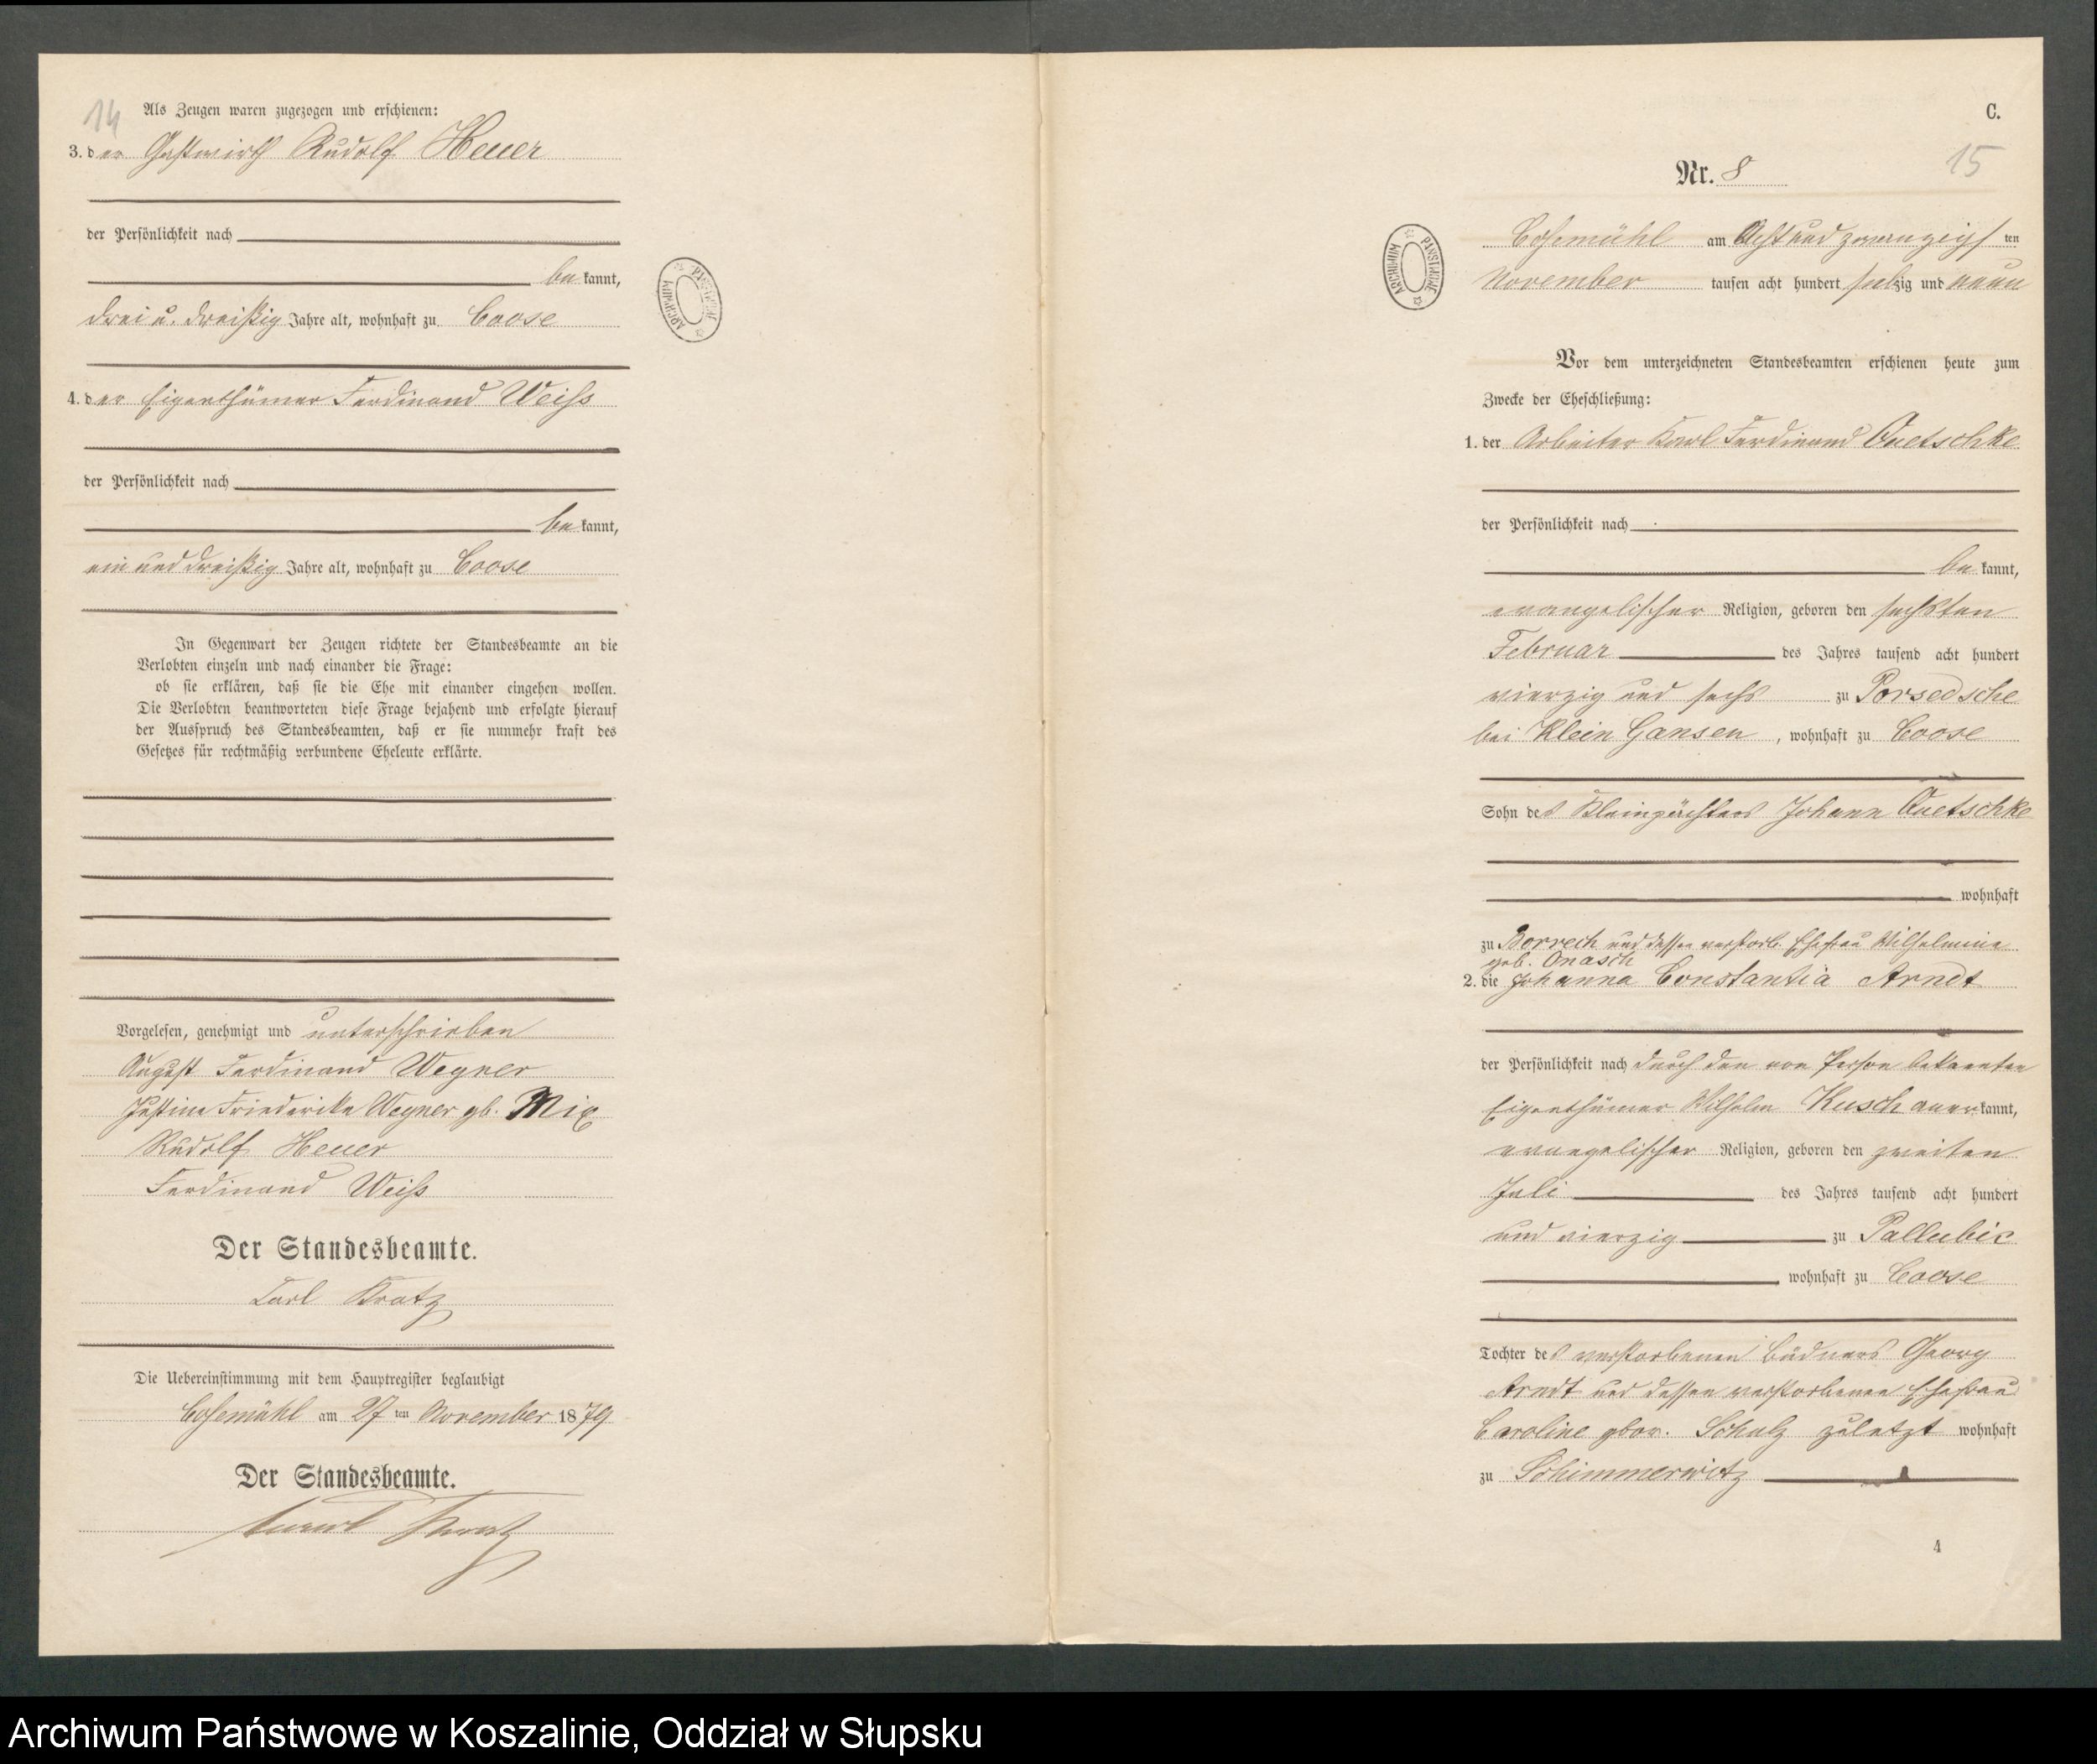 14
Als Zeugen waren zugezogen und erschienen:
3. der Gastwirth Rudolf Heuer
der Persönlichkeit nach
bekannt,
drei u. dreißig Jahre alt, wohnhaft zu Coose
4. der Eigenthümer Ferdinand Weiß
der Persönlichkeit nach
bekannt,
ein und dreißig Jahre alt, wohnhaft zu Coose
In Gegenwart der Zeugen richtete der Standesbeamte an die
Verlobten einzeln und nach einander die Frage:
ob sie erklären, daß sie die Ehe mit einander eingehen wollen.
Die Verlobten beantworteten diese Frage bejahend und erfolgte hierauf
der Ausspruch des Standesbeamten, daß er sie nunmehr kraft des
Gesetzes für rechtmäßig verbundene Eheleute erklärte.
Vorgelesen, genehmigt und unterschrieben
August Ferdinand Wegner
Justine Friederike Wegner gb. Mix
Rudolf Heuer
Ferdinand Weiß
Der Standesbeamte.
Carl Kratz
Die Uebereinstimmung mit dem Hauptregister beglaubigt
Cosemühl am 27 ten November 1879
Der Standesbeamte.
Kratz
ARCHIWUM PAŃSTWOWE
C.
15
Nr. 8
ARCHIWUM PAŃSTWOWE
Cosemühl am Acht und zwanzigsten
November tausen acht hundert siebzig und neun
Vor dem unterzeichneten Standesbeamten erschienen heute zum
Zwecke der Eheschließung:
1. der Arbeiter Karl Ferdinand Quetschke
der Persönlichkeit nach
bekannt,
evangelischer Religion, geboren den sechsten
Februar des Jahres tausend acht hundert
vierzig und sechs zu Porsedsche
bei Klein Gansen, wohnhaft zu Coose
Sohn des Kleinpächters Johann Quetschke
wohnhaft
zu Borrech und dessen verstorb. Ehefrau Wilhelmine
geb. Onasch
2. die Johanna Constantia Arndt
der Persönlichkeit nach durch den von Person bekannten
Eigenthümer Wilhelm Kusch anerkannt,
evangelischer Religion, geboren den zweiten
Juli des Jahres tausend acht hundert
und vierzig zu Pallubic
wohnhaft zu Coose
Tochter des verstorbenen Büdners Georg
Arndt und dessen verstorbenen Ehefrau
Caroline gbor. Schulz zuletzt wohnhaft
zu Schimmerwitz
4
Archiwum Państwowe w Koszalinie, Oddział w Słupsku